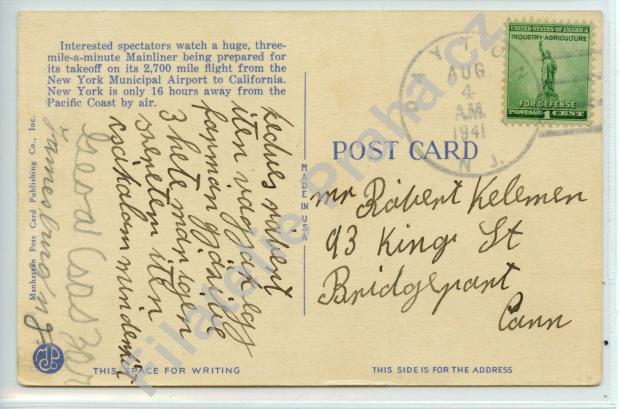 Interested spectators watch a huge, three-
mile-a-minute Mainliner being prepared for
its takeoff on its 2,700 mile flight from the
New York Municipal Airport to California.
New York is only 16 hours away from the
Pacific Coast by air.
Manhattan Post Card Publishing Co., Inc.
kedves robert
iten vagyok egy
farman
3 hete mar igen
szeretem iten
csokolom mindenkit
Jamesburg n. J.
THIS SPACE FOR WRITING
MADE IN USA
DAYTON
AUG
4
A.M.
1941
N.J.
UNITED STATES OF AMERICA
INDUSTRY-AGRICULTURE
FOR DEFENSE
POSTAGE 1 CENT
POST CARD
mr Robert Kelemen
93 King St
Bridgepart
Cann
THIS SIDE IS FOR THE ADDRESS
Filatelie Praha.cz